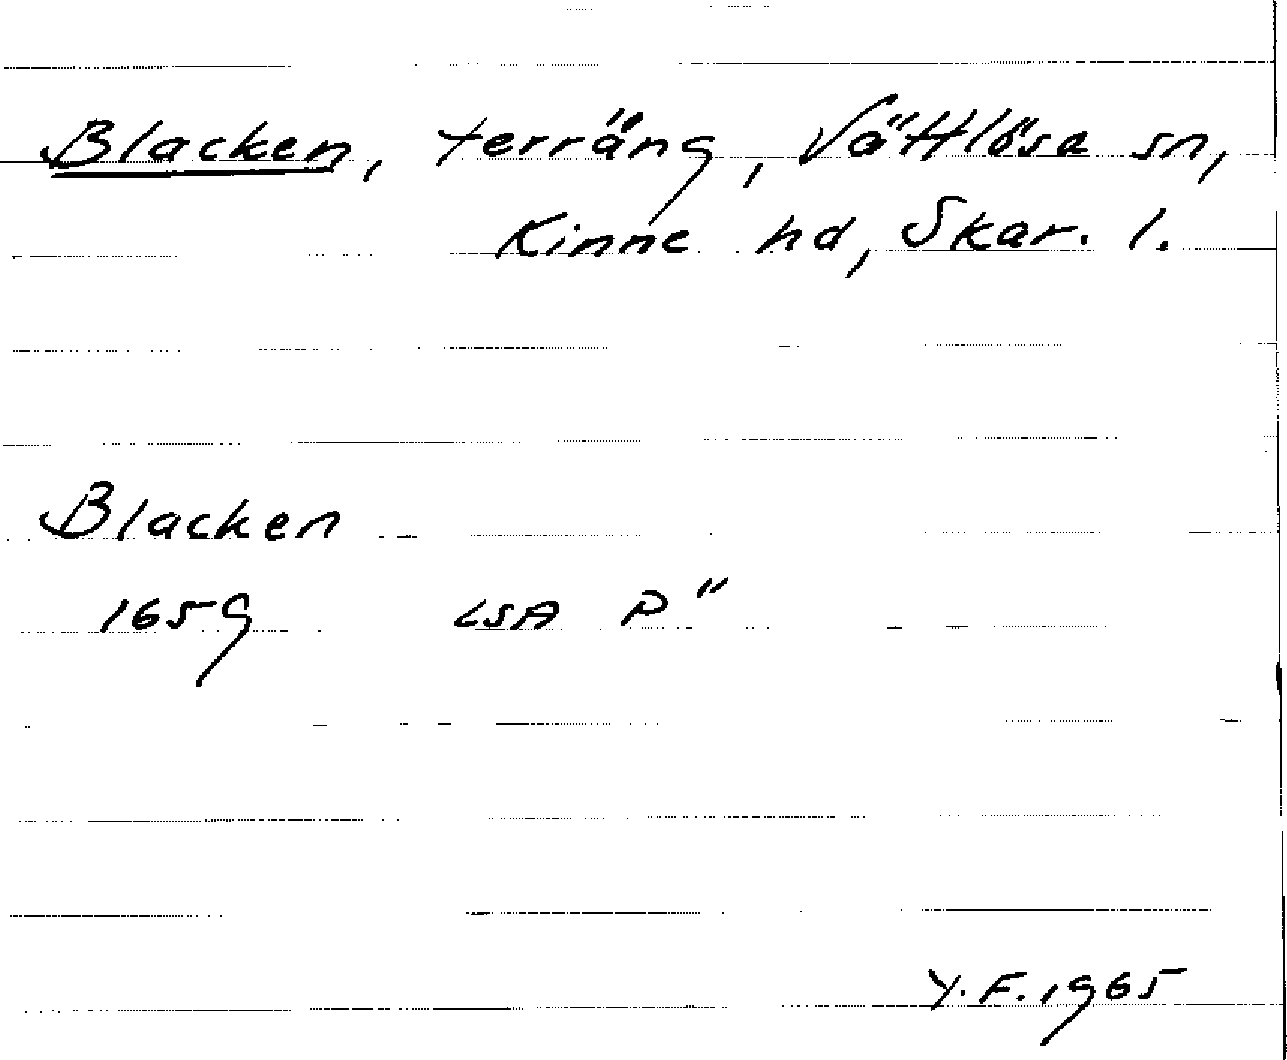 Blacken, terräng, Vättlösa sn,
Kinne hd, Skar. l.
Blacken
1659 LSA P"
Y.F. 1965